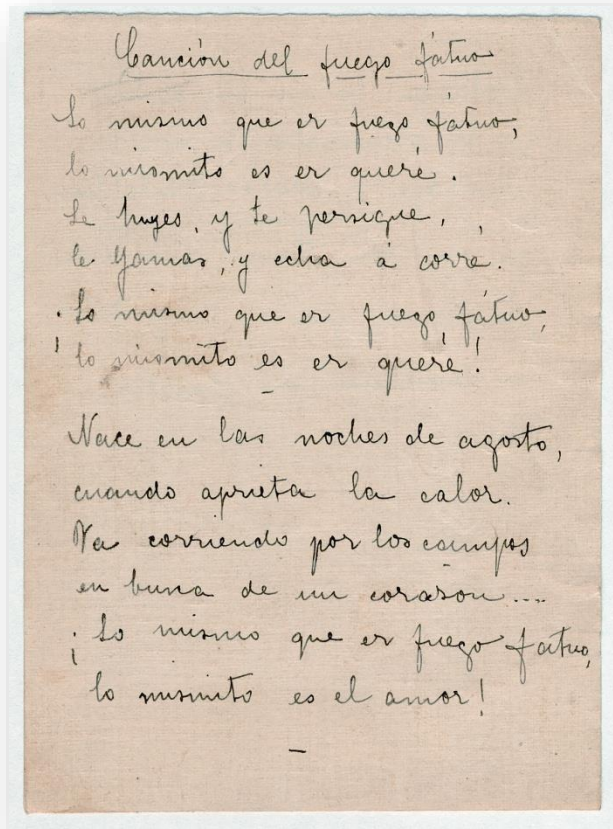 Canción del fuego fátuo
Lo mismo que er fuego fátuo,
lo mismito es er queré.
Le huyes, y te persigue,
le yamas, y echa á corré.
¡Lo mismo que er fuego fátuo,
lo mismito es er queré!
—
Nace en las noches de agosto,
cuando aprieta la calor.
Va corriendo por los campos
en busca de un corasón....
¡Lo mismo que er fuego fatuo,
lo mismito es el amor!
—